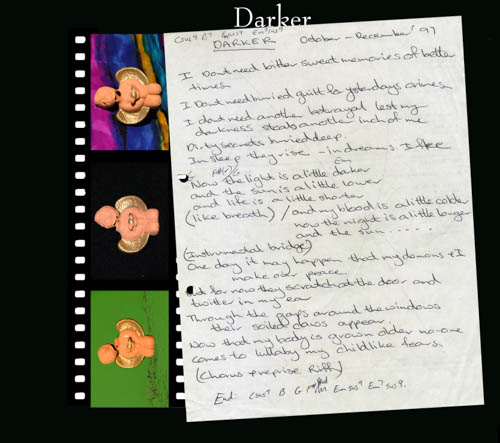 Darker
Csus9 B7 Em7sus9
DARKER October - December '97
I Dont need bitter sweet memories of better
times.
I Dont need buried guilt for yesterdays crimes,
I dont need another betrayal lest my
darkness steals another inch of me
Dirty secrets buried deep.
In sleep they rise - in dreams I flee
Em
Now the light is a little darker
and the sun is a little lower
and life is a little shorter
(like breath) / and my blood is a little colder
now the night is a little longer
and the sun . . . . .
(Instrumental bridge)
One day it may happen that my demons + I
make our peace
But for now they scratch at the door and
twitter in my ear
Through the gaps around the windows
their soiled claws appear.
Now that my body is grown older no-one
comes to lullaby my childlike fears.
(Chorus + reprise Riff)
End: Csus9 B G Em sus9 Em7 sus9.